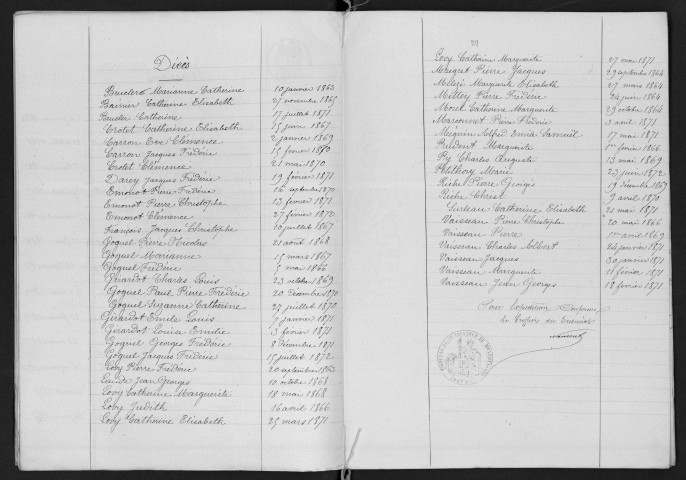 Décès
Bueler Marianne Catherine 10 janvier 1863
Bainier Catherine Elisabeth 27 novembre 1865
Bueler Catherine 17 juillet 1871
Crotet Catherine Elisabeth 15 juin 1867
Carron Eve Clémence 2 janvier 1869
Carron Jacques Frédéric 15 février 1870
Crotet Clémence 21 mai 1870
Darey Jacques Frédéric 19 février 1871
Emonot Pierre Frédéric 16 septembre 1870
Emonot Pierre Christophe 13 février 1871
Emonot Clémence 27 février 1872
François Jacques Christophe 10 juillet 1867
Goguel Pierre Nicolas 21 août 1868
Goguel Marianne 15 mars 1867
Goguel Frédéric 5 mai 1866
Girardot Charles Louis 23 octobre 1869
Goguel Paul Pierre Frédéric 20 décembre 1870
Goguel Suzanne Catherine 27 juillet 1870
Girardot Emile Louis 7 janvier 1871
Girardot Louise Emilie 3 février 1871
Goguel Georges Frédéric 8 décembre 1871
Goguel Jacques Frédéric 15 juillet 1872
Lovy Pierre Frédéric 20 septembre
Jean Georges 10 octobre 1868
Lovy Catherine Marguerite 18 mai 1868
Lovy Judith 16 avril 1866
Lovy Catherine Elisabeth 25 mars 1871
Lovy Catherine Marguerite 27 mai 1871
Maigret Pierre Jacques 29 septembre 1864
Marguerite Elisabeth 27 mars 1864
Mettey Pierre Frédéric 24 juin 1864
Morel Catherine Marguerite 29 octobre 1864
Marconnet Pierre Frédéric 3 avril 1871
Méquin Alfred Emile Samuel 17 mai 1871
Marguerite 1er février 1866
Py Charles Auguste 13 mai 1869
Marie 23 juin 1871
Riche Pierre Georges 19 décembre 1867
Riche Christ 9 avril 1870
Surleau Catherine Elisabeth 21 mai 1871
Vaisseau Pierre Christophe 20 mai 1866
Vaisseau Pierre 1er avril 1869
Vaisseau Charles Albert 24 janvier 1871
Vaisseau Jacques 30 janvier 1871
Vaisseau Marguerite 11 février 1871
Vaisseau Jean Georges 18 février 1871
Pour Expédition Conforme
Le Greffier du Tribunal